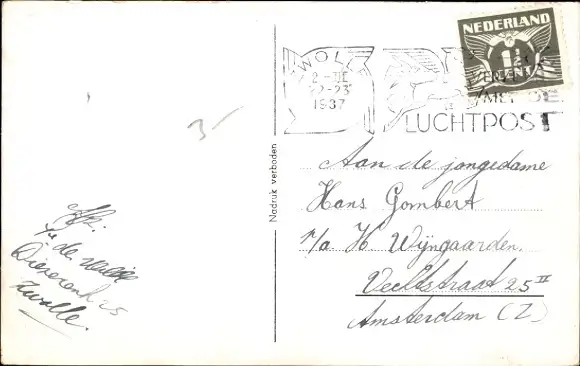 NEDERLAND
1½
CENT
ZWOLLE
2-XII
22-23
1937
MET DE
LUCHTPOST
3-
Nadruk verboden
Aan de jongedame
Hans Gombert
p/a H Wijngaarden.
Vechtstraat 25 II
Amsterdam (Z)
Afz.
de
25
Zwolle.